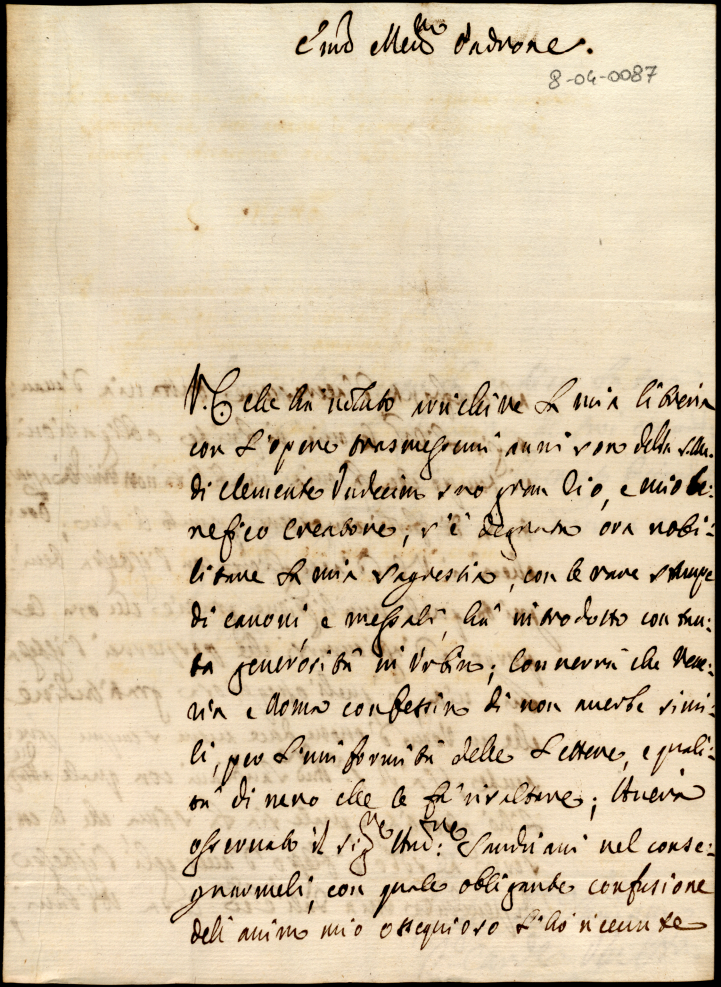 Em̃o e Rev.mo Padrone.
8-04-0087
V. E. che hà voluto arrichire la mia libreria
con l'opere trasmessemi anni son della
di Clemente Undecimo suo gran Zio, e mio be:
nefico Creatore, s'è degnata ora nobi:
litare la mia sagrestia, con le rare stampe
di canoni, e messali, hà introdotto con tan:
ta generosità in Urbino; Converrà che Vene:
zia e Roma confessino di non averle simi:
li, per l'uniformità delle Lettere, e quali:
tà di nero che le fà risaltare; Averà
osservato il sig.re Aud.re Sandriani nel conse:
gnarmeli, con quale obligante confusione
dell'animo mio ossequioso l'hò ricevute